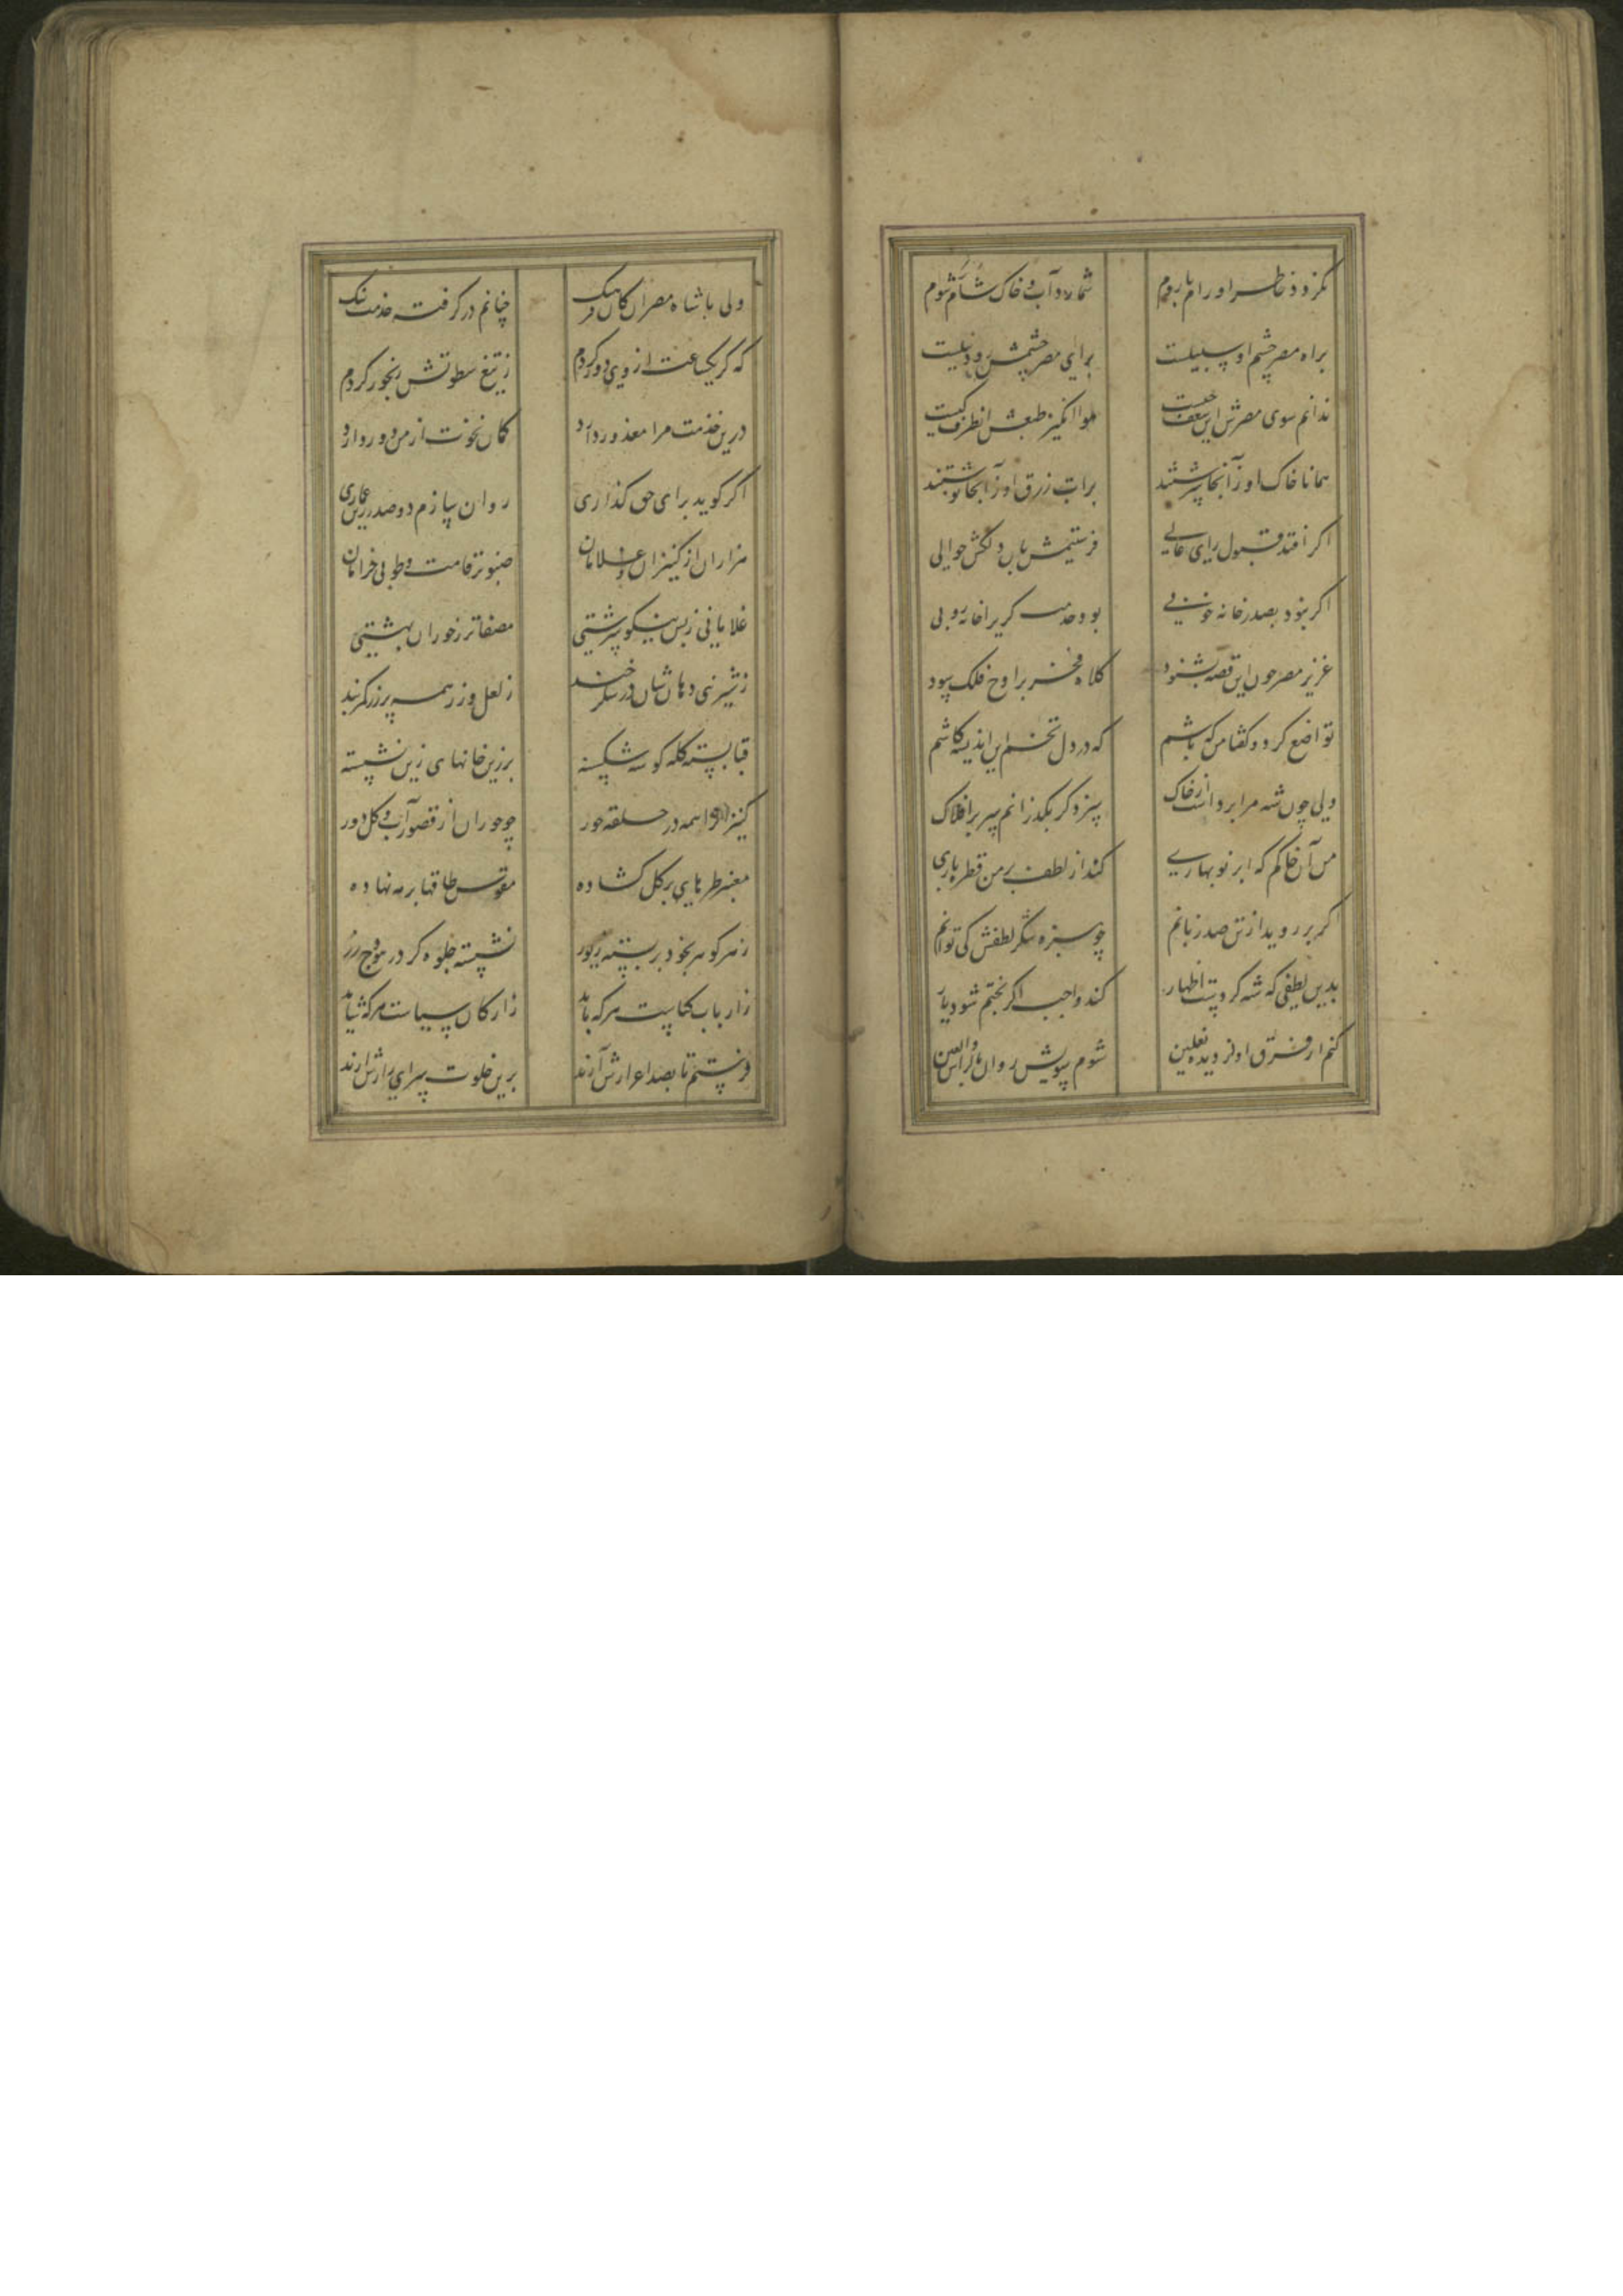 نگردد خاطر او رام با روم شمارد آب و خاک شام را شوم
براه مصر چشم او سبیلست برای مصر چشمش رود نیلست
ندانم سوی مصرش این شعف چیست هوا انگیز طبعش زانطرف کیست
همانا خاک او زآنجا سرشتند برات رزق او زآنجا نوشتند
اگر افتد قبول رای عالی فرستیمش بآن دلکش حوالی
اگر نبود بصدر خانه خوبی بود خدمتگری را خانه روبی
عزیز مصر چون این قصه بشنود کلاه فخر بر اوج فلک سود
تواضع کرد و گفتا من که باشم که در دل تخم این اندیشه کاشم
ولی چون شه مرا برداشت از خاک سزد گر بگذرانم سر بر افلاک
من آن خاکم که ابر نوبهاری کند از لطف بر من قطره باری
اگر بر روید از تن صد زبانم چو سبزه شکر لطفش کی توانم
بدین لطفی که شه کردست اظهار کند واجب اگر بختم شود یار
کنم از فرق او از دیده نعلین شوم سویش روان بالراس و العین
ولی با شاه مصر آن کان فرهنگ چنانم در گرفته خدمت تنگ
که گر یکساعت از وی دور گردم ز تیغ سطوتش رنجور گردم
درین خدمت مرا معذور دارد گمان نخوت از من دور دارد
اگر گوید برای حق گذاری روان سازم دو صد زرین عماری
هزاران از کنیزان و غلامان صنوبر قامت و طوبی خرامان
غلامانی ز بس نیکو سرشتی مصفاتر ز حوران بهشتی
ز شیرینی دهانشان در شکر خند ز لعل و زر همه پر زر کمربند
قبا بسته کله گوشه شکسته بزرین خانهای زین نشسته
کنیزان همه در حلقه حور چو حوران از قصور آب و گل دور
معنبر طرهای بر گل گشاده مقوس طاقها بر مه نهاده
ز هر گوهر بخود بر بسته زیور نشسته جلوه گر در هودج زر
ز ارباب کیاست هر که باید ز ارکان سیاست هر که شاید
فرستم تا بصد اعزازش آرند برین خلوت سرای رازش آرند